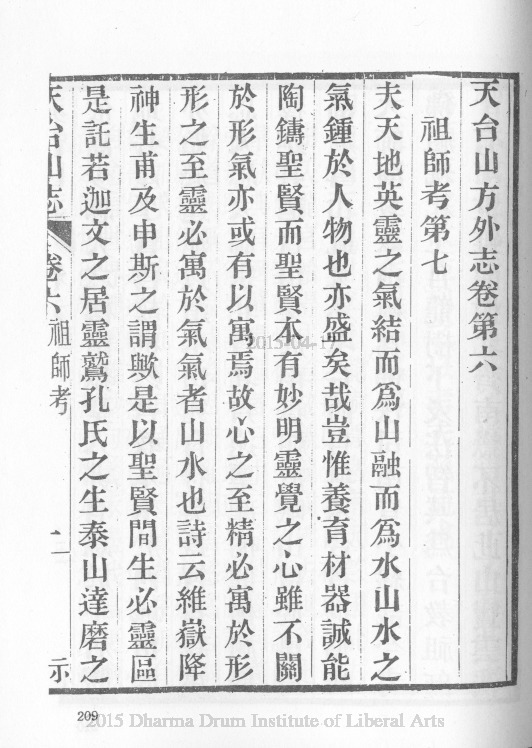 天台山方外志卷第六
祖師考第七
夫天地英靈之氣結而爲山融而爲水山水之
氣鍾於人物也亦盛矣哉豈惟養育材器誠能
陶鑄聖賢而聖賢本有妙明靈覺之心雖不關
於形氣亦或有以寓焉故心之至精必寓於形
形之至靈必寓於氣氣者山水也詩云維嶽降
神生甫及申斯之謂歟是以聖賢間生必靈區
是託若迦文之居靈鷲孔氏之生泰山達磨之
天台山志 卷六 祖師考 一 示
2015-04-17
209
2015 Dharma Drum Institute of Liberal Arts